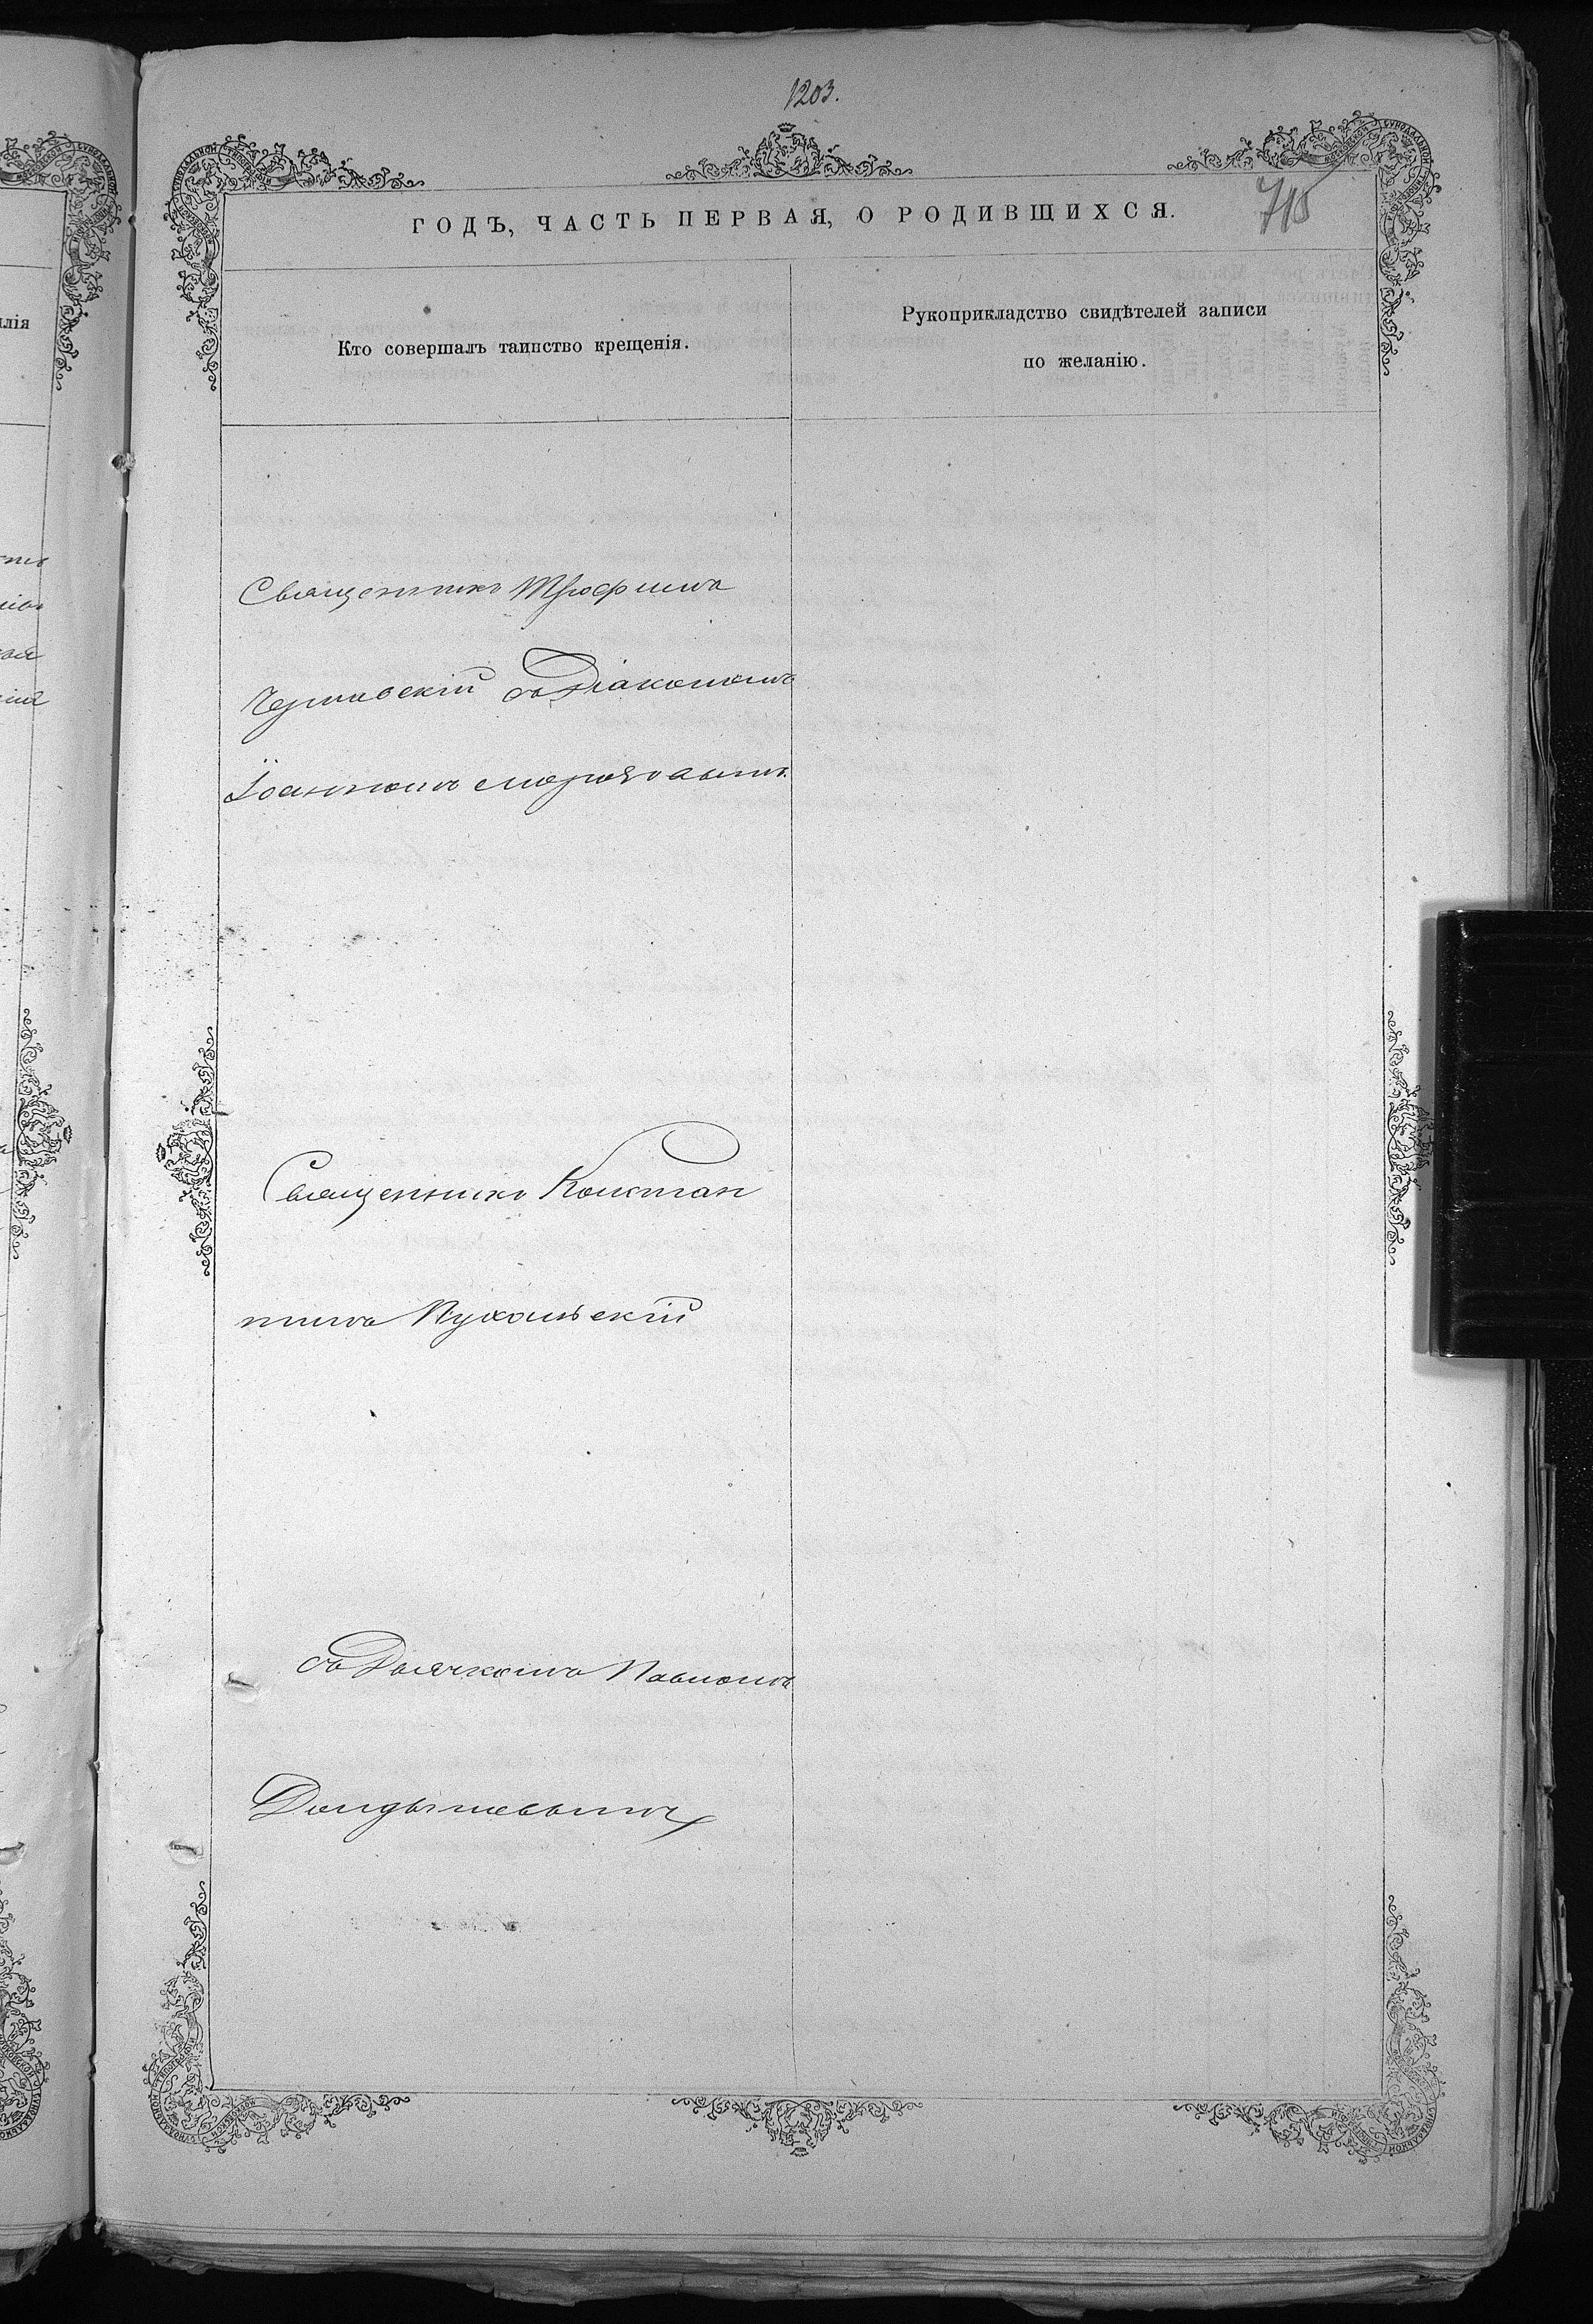 1203.
715
ГОДЪ, ЧАСТЬ ПЕРВАЯ, О РОДИВШИХСЯ.
Кто совершалъ таинство крещенія.
Рукоприкладство свидѣтелей записи
по желанію.
Священникъ Трофимъ
съ Діакономъ
Іоанномъ
Священникъ Констан
тинъ Пухальскій
съ Дьячкомъ Павломъ